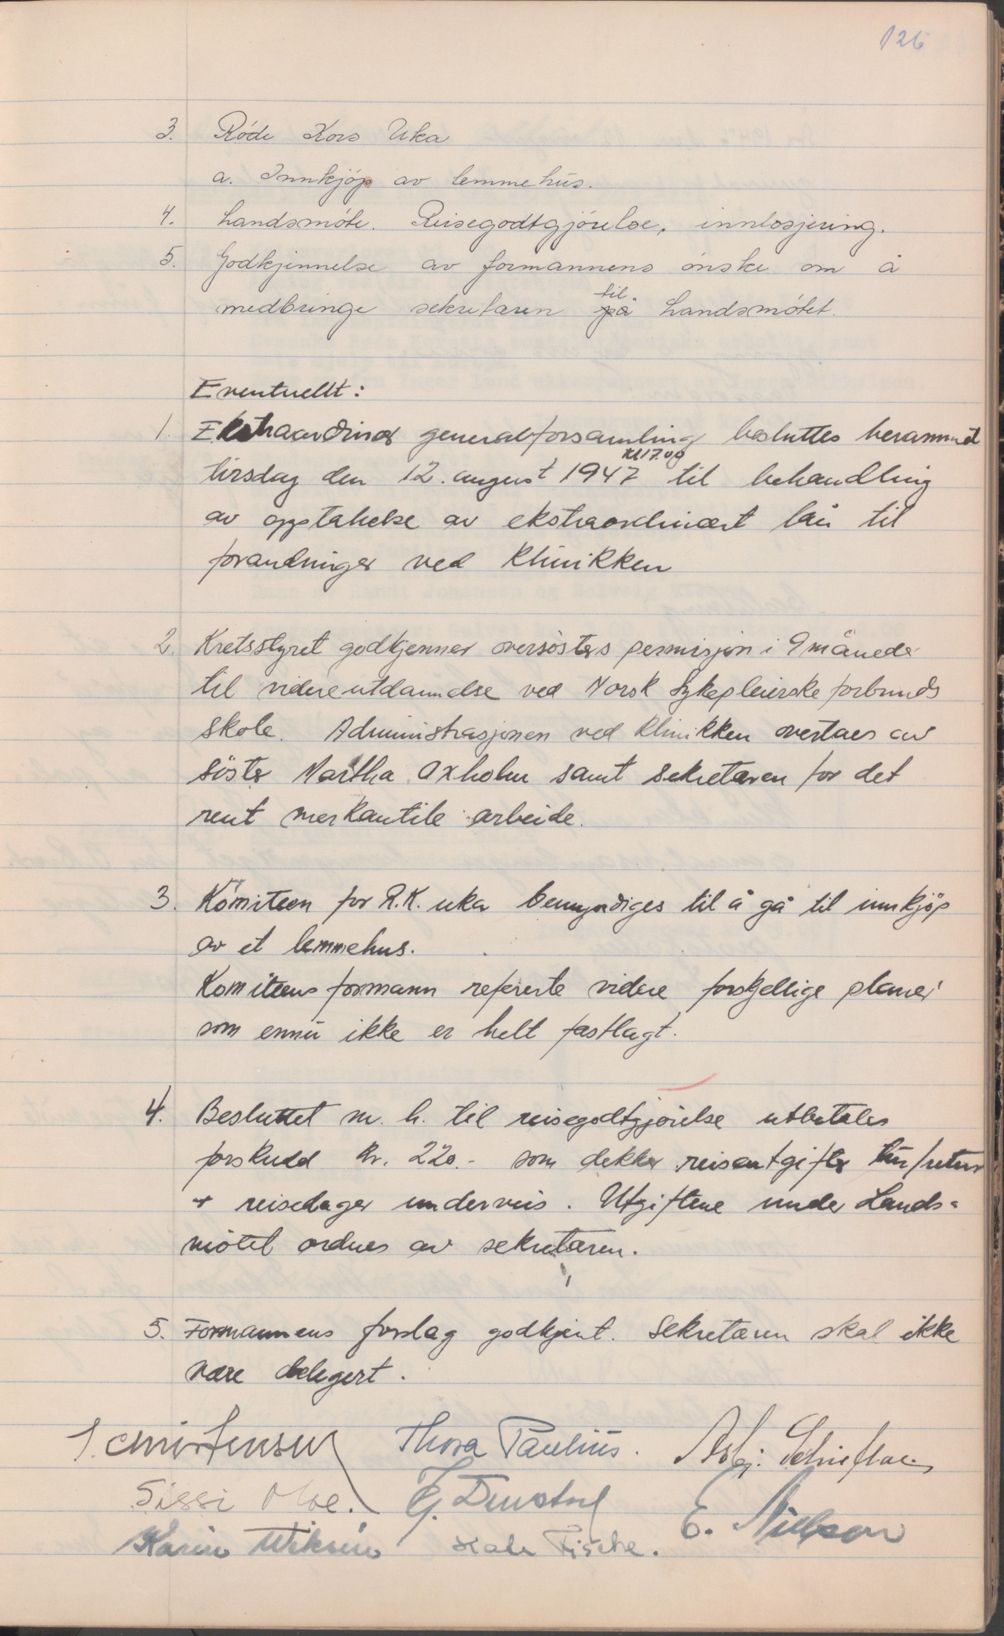 126
3. Röde Kors Uka
a. Innkjöp av lemmehus.
4. Landsmöte. Reisegodtgjörelse, innlosjering.
5. Godkjennelse av formannens önske om å
til
medbringe sekretæren på Landsmötet.
Eventuellt:
1. Ekstraordinær generalforsamling besluttes berammet
kl 17.00
tirsdag den 12. august 1947 til behandling
av opptakelse av ekstraordinært lån til
forandringer ved Klinikken
2. Kretsstyret godkjenner oversösters permisjon i 9 måneder
til videreutdannelse ved Norsk Sykepleierskeforbunds
skole. Administrasjonen ved Klinikken overtaes av
söster Martha Oxholm samt sekretæren for det
rent merkantile arbeide.
3. Komiteen for R.K. uka bemyndiges til å gå til innkjöp
av et lemmehus.
Komiteens formann refererte videre forskjellige planer
som ennu ikke er helt fastlagt.
4. Besluttet m. h. til reisegodtgjörelse utbetales
forskudd kr. 220.- som dekker reiseutgifter tur/retur
+ reisedager underveis. Utgiftene under Lands-
mötet ordnes av sekretæren.
5. Formannens forslag godkjent. Sekretæren skal ikke
være delegert.
Thora Paulius. Asbj:
Sissi Moe.
Karin E. Nielsen